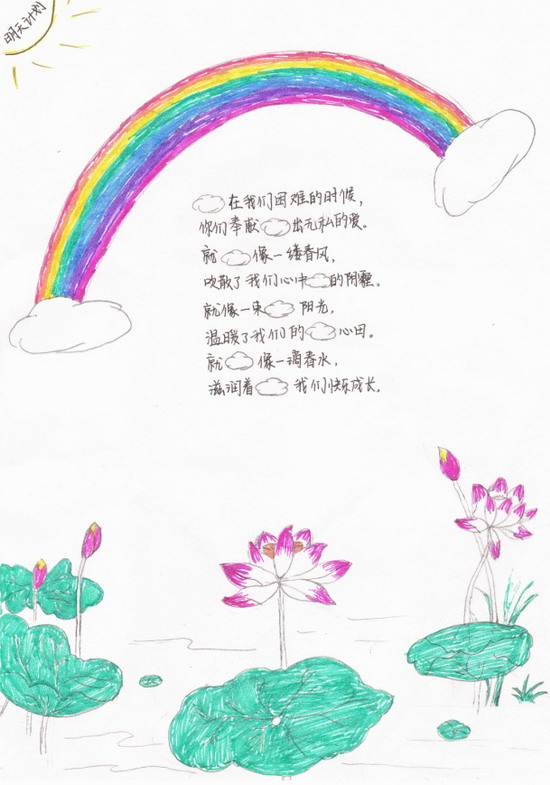 明天计划
在我们困难的时候，
你们奉献出无私的爱。
就像一缕春风，
吹散了我们心中的阴霾。
就像一束阳光，
温暖了我们的心田。
就像一滴春水，
滋润着我们快乐成长。